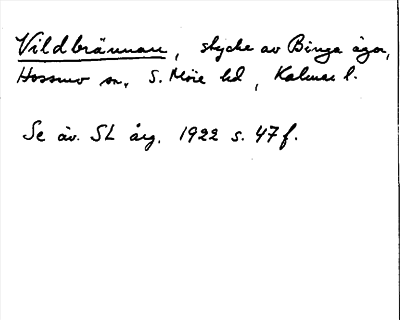 Vildbrännan, stycke av Binga ägor,
Hossmo sn, S. Möre hd, Kalmar l.
Se äv. SL årg. 1922 s. 47 f.